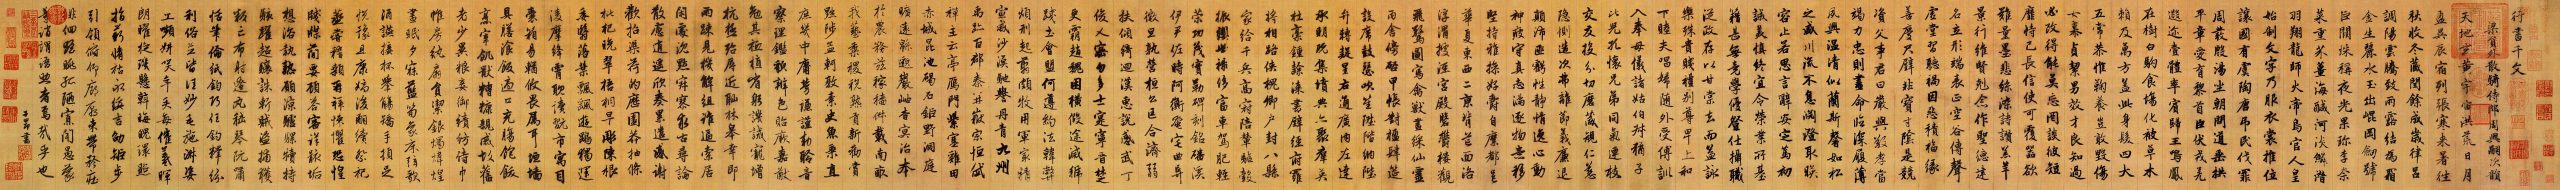 行書千文
梁員外散騎侍郎周興嗣次韻
天地玄黃宇宙洪荒日月
盈昃辰宿列張寒來暑往
秋收冬藏閏餘成歲律呂
調陽雲騰致雨露結為霜
金生麗水玉出崑岡劍號
巨闕珠稱夜光果珍李柰
菜重芥薑海鹹河淡鱗潛
羽翔龍師火帝鳥官人皇
始制文字乃服衣裳推位
讓國有虞陶唐弔民伐罪
周發殷湯坐朝問道垂拱
平章愛育黎首臣伏戎羌
遐邇壹體率賓歸王鳴鳳
在樹白駒食場化被草木
賴及萬方蓋此身髮四大
五常恭惟鞠養豈敢毀傷
女慕貞絜男效才良知過
必改得能莫忘罔談彼短
靡恃己長信使可覆器欲
難量墨悲絲染詩讚羔羊
景行維賢剋念作聖德建
名立形端表正空谷傳聲
虛堂習聽禍因惡積福緣
善慶尺璧非寶寸陰是競
資父事君曰嚴與敬孝當
竭力忠則盡命臨深履薄
夙興溫凊似蘭斯馨如松
之盛川流不息淵澄取暎
容止若思言辭安定篤初
誠美慎終宜令榮業所基
籍甚無竟學優登仕攝職
從政存以甘棠去而益詠
樂殊貴賤禮別尊卑上和
下睦夫唱婦隨外受傅訓
入奉母儀諸姑伯叔猶子
比兒孔懷兄弟同氣連枝
交友投分切磨箴規仁慈
隱惻造次弗離節義廉退
顛沛匪虧性靜情逸心動
神疲守真志滿逐物意移
堅持雅操好爵自縻都邑
華夏東西二京背芒面洛
浮渭據涇宮殿盤鬱樓觀
飛驚圖寫禽獸畫綵仙靈
丙舍傍啓甲帳對楹肆筵
設席鼓瑟吹笙陞階納陛
弁轉疑星右通廣內左達
承明既集墳典亦聚群英
杜稾鍾隸漆書壁經府羅
將相路俠槐卿戶封八縣
家給千兵高冠陪輦驅轂
振纓世祿侈富車駕肥輕
策功茂實勒碑刻銘磻溪
伊尹佐時阿衡奄宅曲阜
微旦孰營桓公匡合濟弱
扶傾綺迴漢惠說感武丁
俊乂密勿多士寔寧晉楚
更霸趙魏困橫假途滅虢
踐土會盟何遵約法韓弊
煩刑起翦頗牧用軍最精
宣威沙漠馳譽丹青九州
禹跡百郡秦并嶽宗恒岱
禪主云亭雁門紫塞雞田
赤城昆池碣石鉅野洞庭
曠遠綿邈巖岫杳冥治本
於農務茲稼穡俶載南畝
我藝黍稷稅熟貢新勸賞
黜陟孟軻敦素史魚秉直
庶幾中庸勞謙謹勑聆音
察理鑑貌辨色貽厥嘉猷
勉其祗植省躬譏誡寵增
抗極殆辱近恥林皋幸即
兩疏見機解組誰逼索居
閑處沉默寂寥求古尋論
散慮逍遙欣奏累遣慼謝
歡招渠荷的歷園莽抽條
枇杷晚翠梧桐早凋陳根
委翳落葉飄颻遊鵾獨運
凌摩絳霄耽讀翫市寓目
囊箱易輶攸畏屬耳垣牆
具膳飡飯適口充腸飽飫
烹宰飢厭糟糠親戚故舊
老少異糧妾御績紡侍巾
帷房紈扇圓潔銀燭煒煌
晝眠夕寐藍筍象床弦歌
酒讌接杯舉觴矯手頓足
悅豫且康嫡後嗣續祭祀
蒸嘗稽顙再拜悚懼恐惶
牋牒簡要顧答審詳骸垢
想浴執熱願涼驢騾犢特
駭躍超驤誅斬賊盜捕獲
叛亡布射遼丸嵇琴阮嘯
恬筆倫紙鈞巧任釣釋紛
利俗並皆佳妙毛施淑姿
工顰妍笑年矢每催羲暉
朗曜璇璣懸斡晦魄環照
指薪修祜永綏吉劭矩步
引領俯仰廊廟束帶矜莊
徘徊瞻眺孤陋寡聞愚蒙
等誚謂語助者焉哉乎也
子昂書